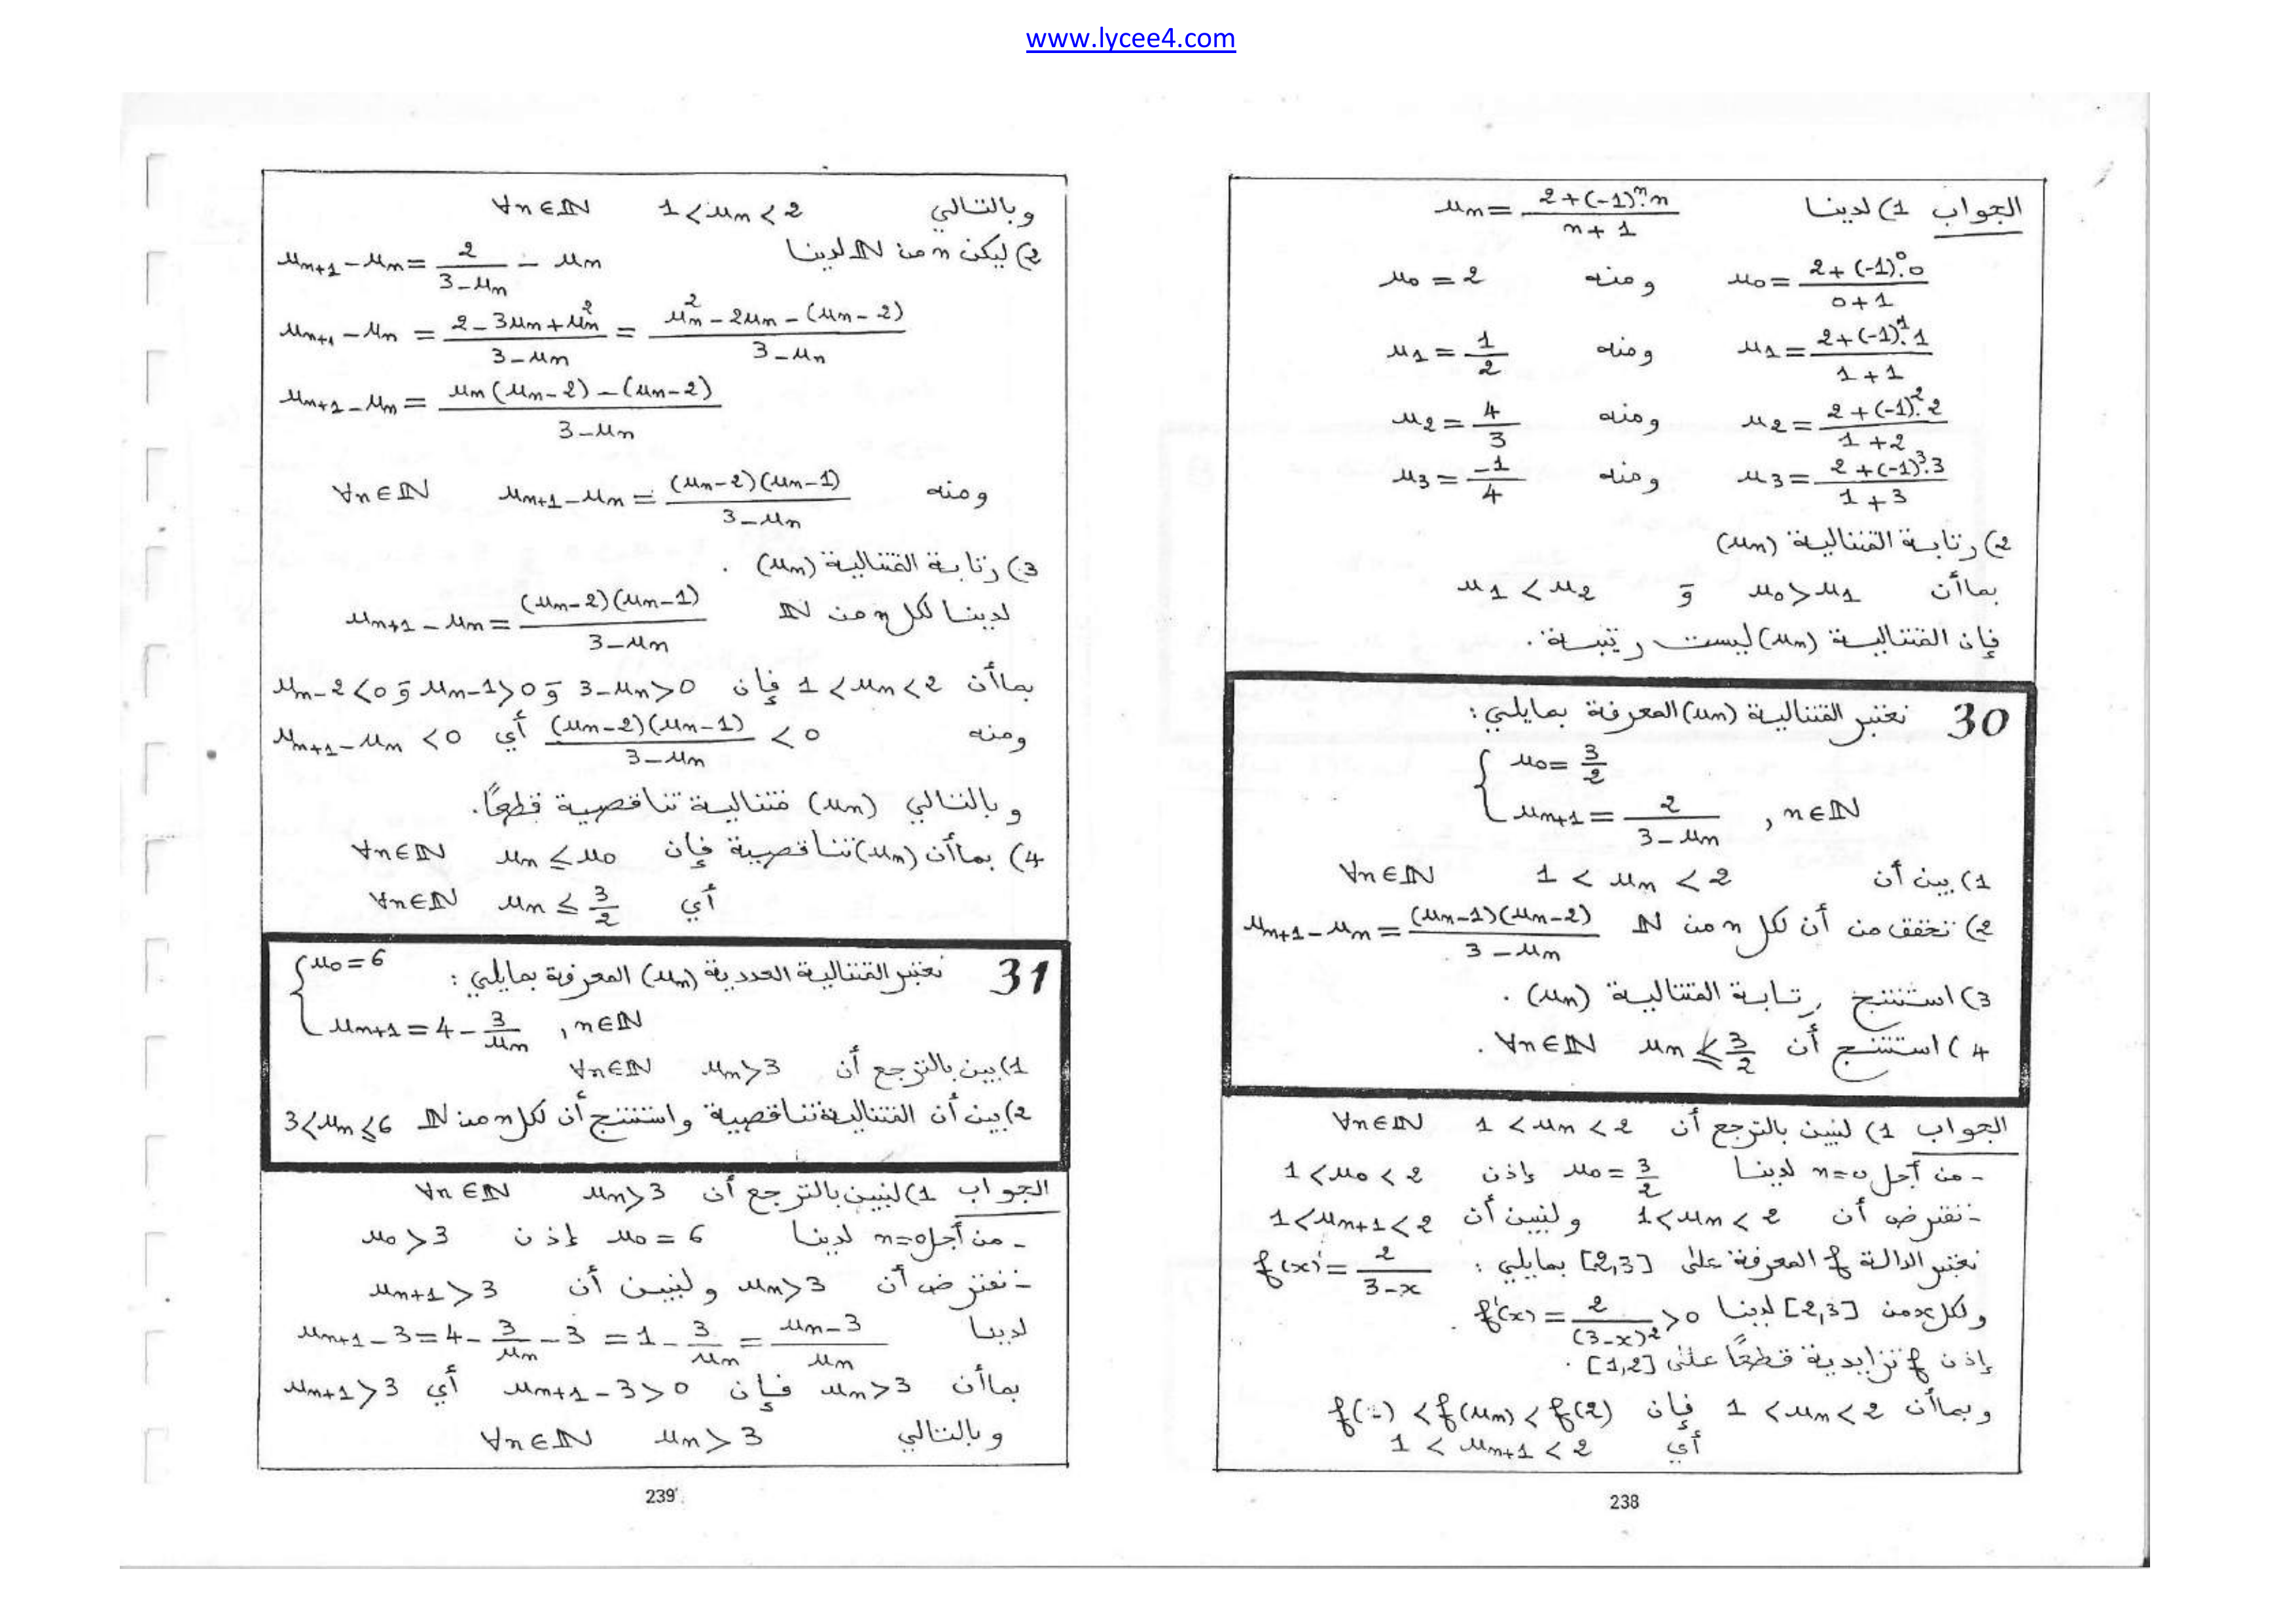 www.lycee4.com
الجواب 1) لدينا uₙ = (2+(-1)ⁿ.n)/(n+1)
u₀ = (2+(-1)⁰.0)/(0+1) ومنه u₀ = 2
u₁ = (2+(-1)¹.1)/(1+1) ومنه u₁ = 1/2
u₂ = (2+(-1)².2)/(1+2) ومنه u₂ = 4/3
u₃ = (2+(-1)³.3)/(1+3) ومنه u₃ = -1/4
2) رتابة المتتالية (uₙ)
بما أن u₀ > u₁ و u₁ < u₂
فإن المتتالية (uₙ) ليست رتيبة.
30 نعتبر المتتالية (uₙ) المعرفة بمايلي:
{ u₀ = 3/2
uₙ₊₁ = 2/(3-uₙ) , n∈ℕ
1) بين أن 1 < uₙ < 2 ∀n∈ℕ
2) تحقق من أن لكل n من ℕ uₙ₊₁ - uₙ = (uₙ-1)(uₙ-2)/(3-uₙ)
3) استنتج رتابة المتتالية (uₙ) .
4) استنتج أن uₙ ≤ 3/2 ∀n∈ℕ .
الجواب 1) لنبين بالترجع أن 1 < uₙ < 2 ∀n∈ℕ
- من أجل n=0 لدينا u₀ = 3/2 إذن 1 < u₀ < 2
- نفترض أن 1 < uₙ < 2 ولنبين أن 1 < uₙ₊₁ < 2
نعتبر الدالة f المعرفة على [2,3] بمايلي : f(x) = 2/(3-x)
ولكل x من [2,3] لدينا f'(x) = 2/(3-x)² > 0 .
إذن f تزايدية قطعًا على [1,2] .
وبما أن 1 < uₙ < 2 فإن f(1) < f(uₙ) < f(2)
أي 1 < uₙ₊₁ < 2
238
وبالتالي 1 < uₙ < 2 ∀n∈ℕ
2) ليكن n من ℕ لدينا uₙ₊₁ - uₙ = 2/(3-uₙ) - uₙ
uₙ₊₁ - uₙ = (2-3uₙ+uₙ²)/(3-uₙ) = (uₙ²-2uₙ-(uₙ-2))/(3-uₙ)
uₙ₊₁ - uₙ = (uₙ(uₙ-2)-(uₙ-2))/(3-uₙ)
ومنه uₙ₊₁ - uₙ = (uₙ-2)(uₙ-1)/(3-uₙ) ∀n∈ℕ
3) رتابة المتتالية (uₙ) .
لدينا لكل n من ℕ uₙ₊₁ - uₙ = (uₙ-2)(uₙ-1)/(3-uₙ)
بما أن 1 < uₙ < 2 فإن 3-uₙ>0 و uₙ-1>0 و uₙ-2<0
ومنه (uₙ-2)(uₙ-1)/(3-uₙ) < 0 أي uₙ₊₁ - uₙ < 0
وبالتالي (uₙ) متتالية تناقصية قطعًا.
4) بما أن (uₙ) تناقصية فإن uₙ ≤ u₀ ∀n∈ℕ
أي uₙ ≤ 3/2 ∀n∈ℕ
31 نعتبر المتتالية العددية (uₙ) المعرفة بمايلي : { u₀ = 6
uₙ₊₁ = 4 - 3/uₙ , n∈ℕ
1) بين بالترجع أن uₙ > 3 ∀n∈ℕ
2) بين أن المتتالية تناقصية واستنتج أن لكل n من ℕ 3 < uₙ ≤ 6
الجواب 1) لنبين بالترجع أن uₙ > 3 ∀n∈ℕ
- من أجل n=0 لدينا u₀ = 6 إذن u₀ > 3
- نفترض أن uₙ > 3 ولنبين أن uₙ₊₁ > 3
لدينا uₙ₊₁ - 3 = 4 - 3/uₙ - 3 = 1 - 3/uₙ = (uₙ-3)/uₙ
بما أن uₙ > 3 فإن uₙ₊₁ - 3 > 0 أي uₙ₊₁ > 3
وبالتالي uₙ > 3 ∀n∈ℕ
239